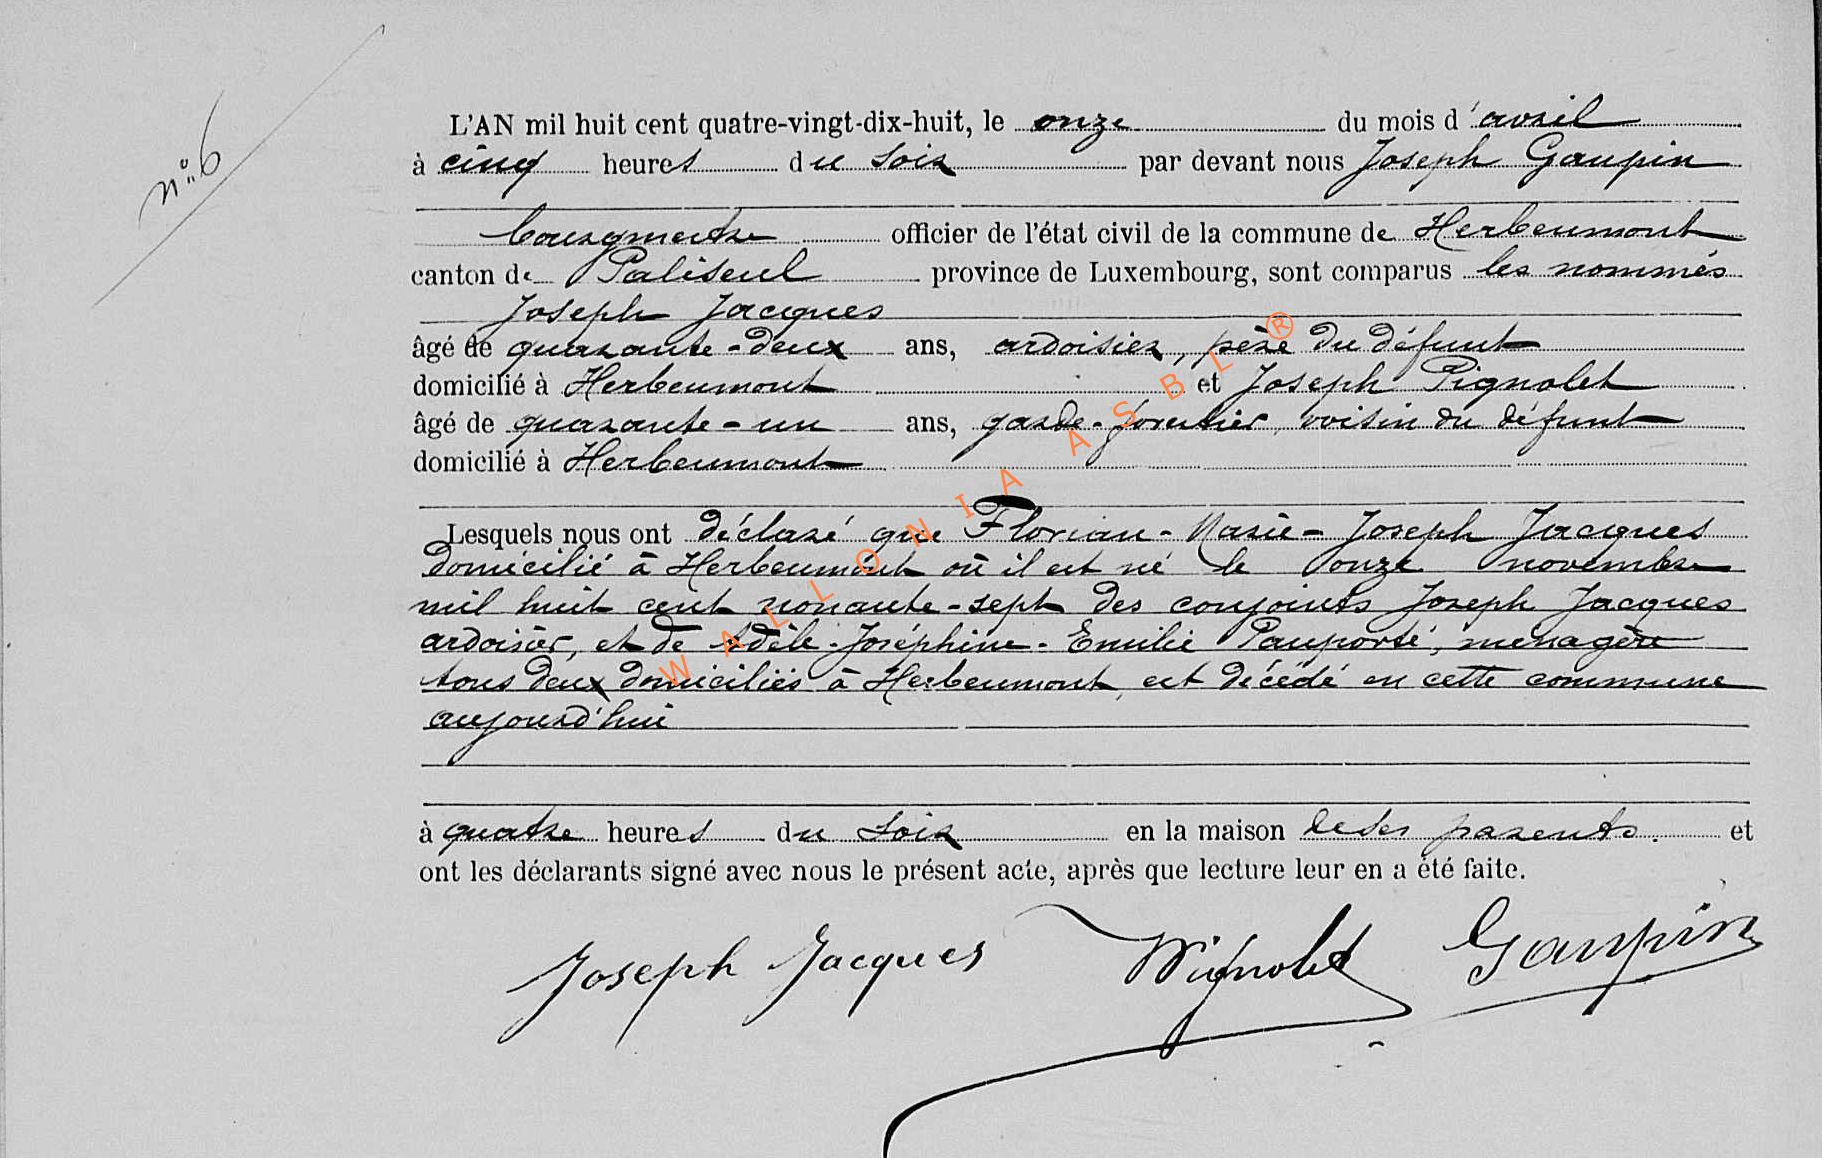 n° 6
L'AN mil huit cent quatre-vingt-dix-huit, le onze du mois d'avril
à cinq heures du soir par devant nous Joseph Gaupin
Bourgmestre officier de l'état civil de la commune de Herbeumont
canton de Paliseul province de Luxembourg, sont comparus les nommés
Joseph Jacques
âgé de quarante-deux ans, ardoisier, père du défunt
domicilié à Herbeumont et Joseph Pignolet
âgé de quarante-un ans, garde-forestier, voisin du défunt
domicilié à Herbeumont
Lesquels nous ont déclaré que Florian-Marie-Joseph Jacques
domicilié à Herbeumont où il est né le onze novembre
mil huit cent nonante-sept des conjoints Joseph Jacques
ardoisier, et de Adèle-Joséphine-Emilie Pauporté, ménagère
tous deux domiciliés à Herbeumont, est décédé en cette commune
aujourd'hui
à quatre heures du soir en la maison de ses parents. et
ont les déclarants signé avec nous le présent acte, après que lecture leur en a été faite.
Joseph Jacques Pignolet Gaupin
WALLONIA ASBL ®